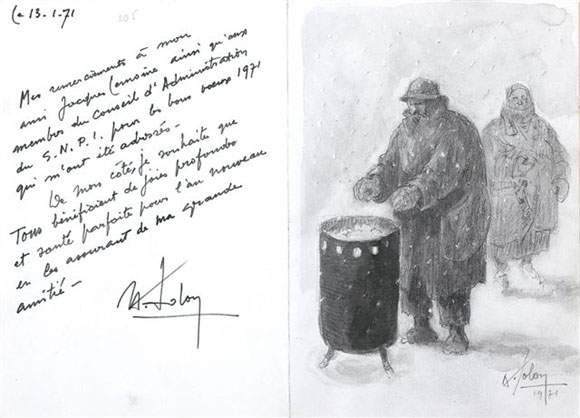 Le 13-1-71
Mes remerciements à mon
ami Jacques Lemoine ainsi qu'aux
membres du Conseil d'Administration
du S.N.P.I. pour les bons voeux 1971
qui m'ont été adressés -
De mon côtés, je souhaite que
Tous bénéficient de joies profondes
et santé parfaite pour l'an nouveau
en les assurant de ma grande
amitié -
1971